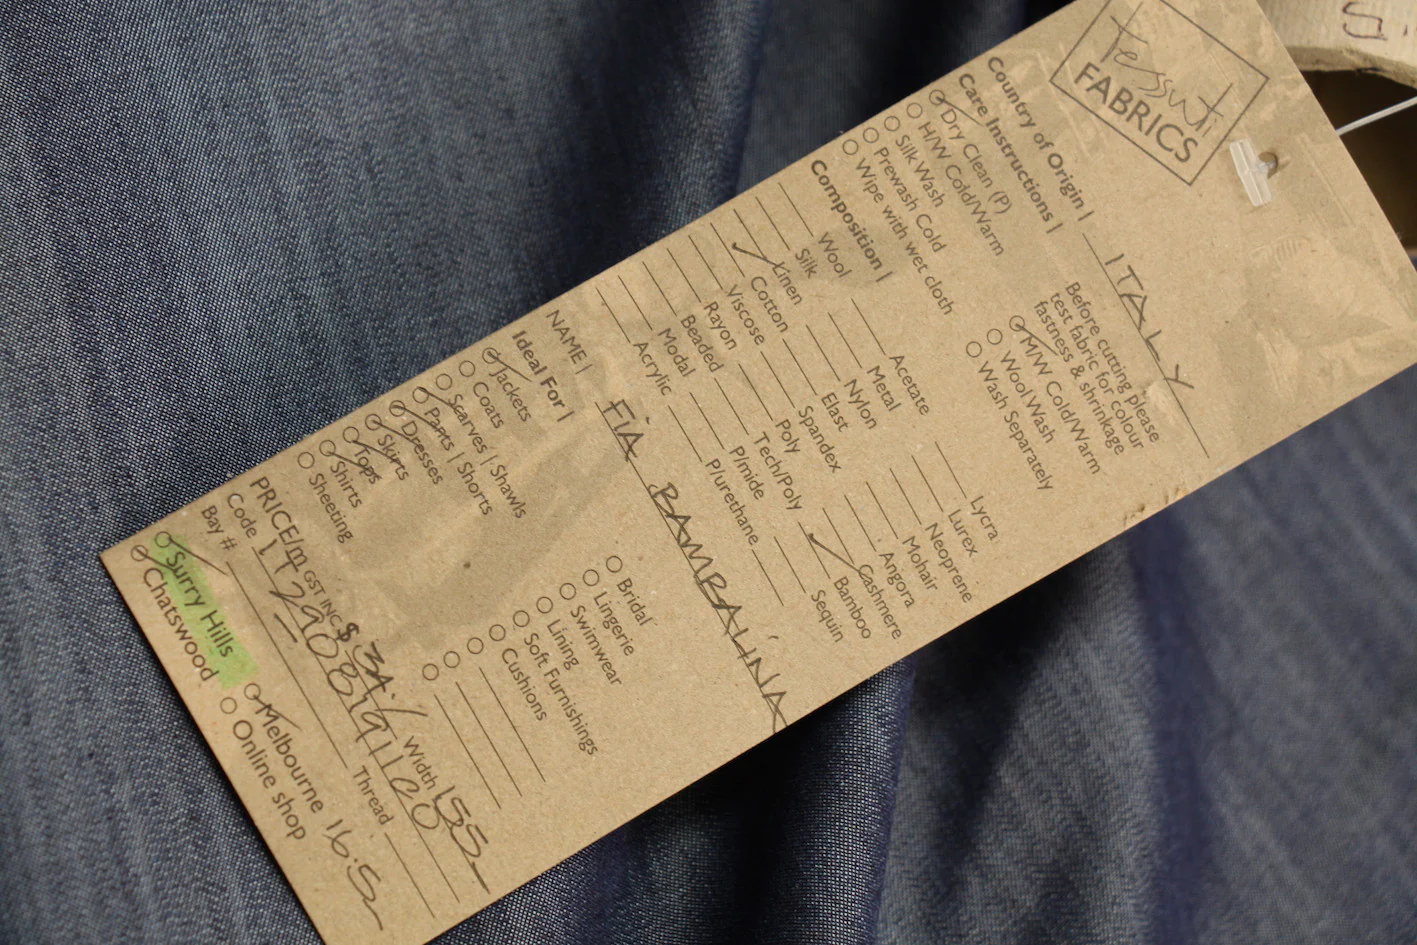 Tessuti
FABRICS
Country of Origin | ITALY
Care Instructions |
Dry Clean (P)
H/W Cold/Warm
Silk Wash
Prewash Cold
Wipe with wet cloth
Before cutting please
test fabric for colour
fastness & shrinkage
M/W Cold/Warm
Wool Wash
Wash Separately
Composition |
Wool Acetate Lycra
Silk Metal Lurex
Linen Nylon Neoprene
Cotton Elast Mohair
Viscose Spandex Angora
Rayon Poly Cashmere
Beaded Tech/Poly Bamboo
Modal P/mide Sequin
Acrylic P/urethane
NAME | FIA BAMBALINA
Ideal For |
Jackets
Coats
Scarves | Shawls
Pants | Shorts
Dresses
Skirts
Tops
Shirts
Sheeting
Bridal
Lingerie
Swimwear
Lining
Soft Furnishings
Cushions
PRICE/m GST INC $34./ Width 155
Code
Bay # Thread
Surry Hills Melbourne 16.5
Chatswood Online shop